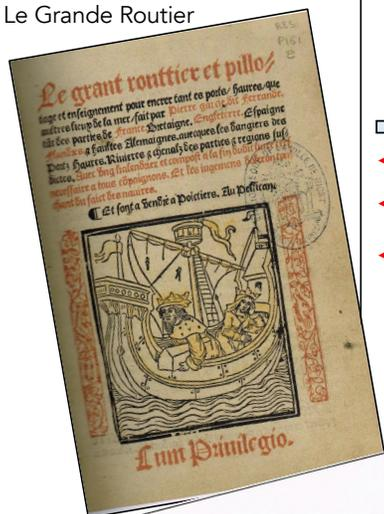 Le Grande Routier
RES
P151
Le grant routtier et pillo/
tage et enseignement pour encrer tant es portz/ haures/ que
aultres lieux de la mer/ fait par Pierre garcie dit Ferrande.
tãt des parties de France Bretaigne. Engleterre. Espaigne
Flandres & haultes Allemaignes. auecques les dangiers des
Portz Haures. Riuieres & chenalz des parties & regions sus/
dictes. Auec ung kalendrier et compost a la fin dudit liure tres
necessaire a tous cõpaignons. Et les iugemens doleron tou
chant du faict des nauires.
Et sont a vendre a Poictiers. Au Pellican.
Cum Priuilegio.